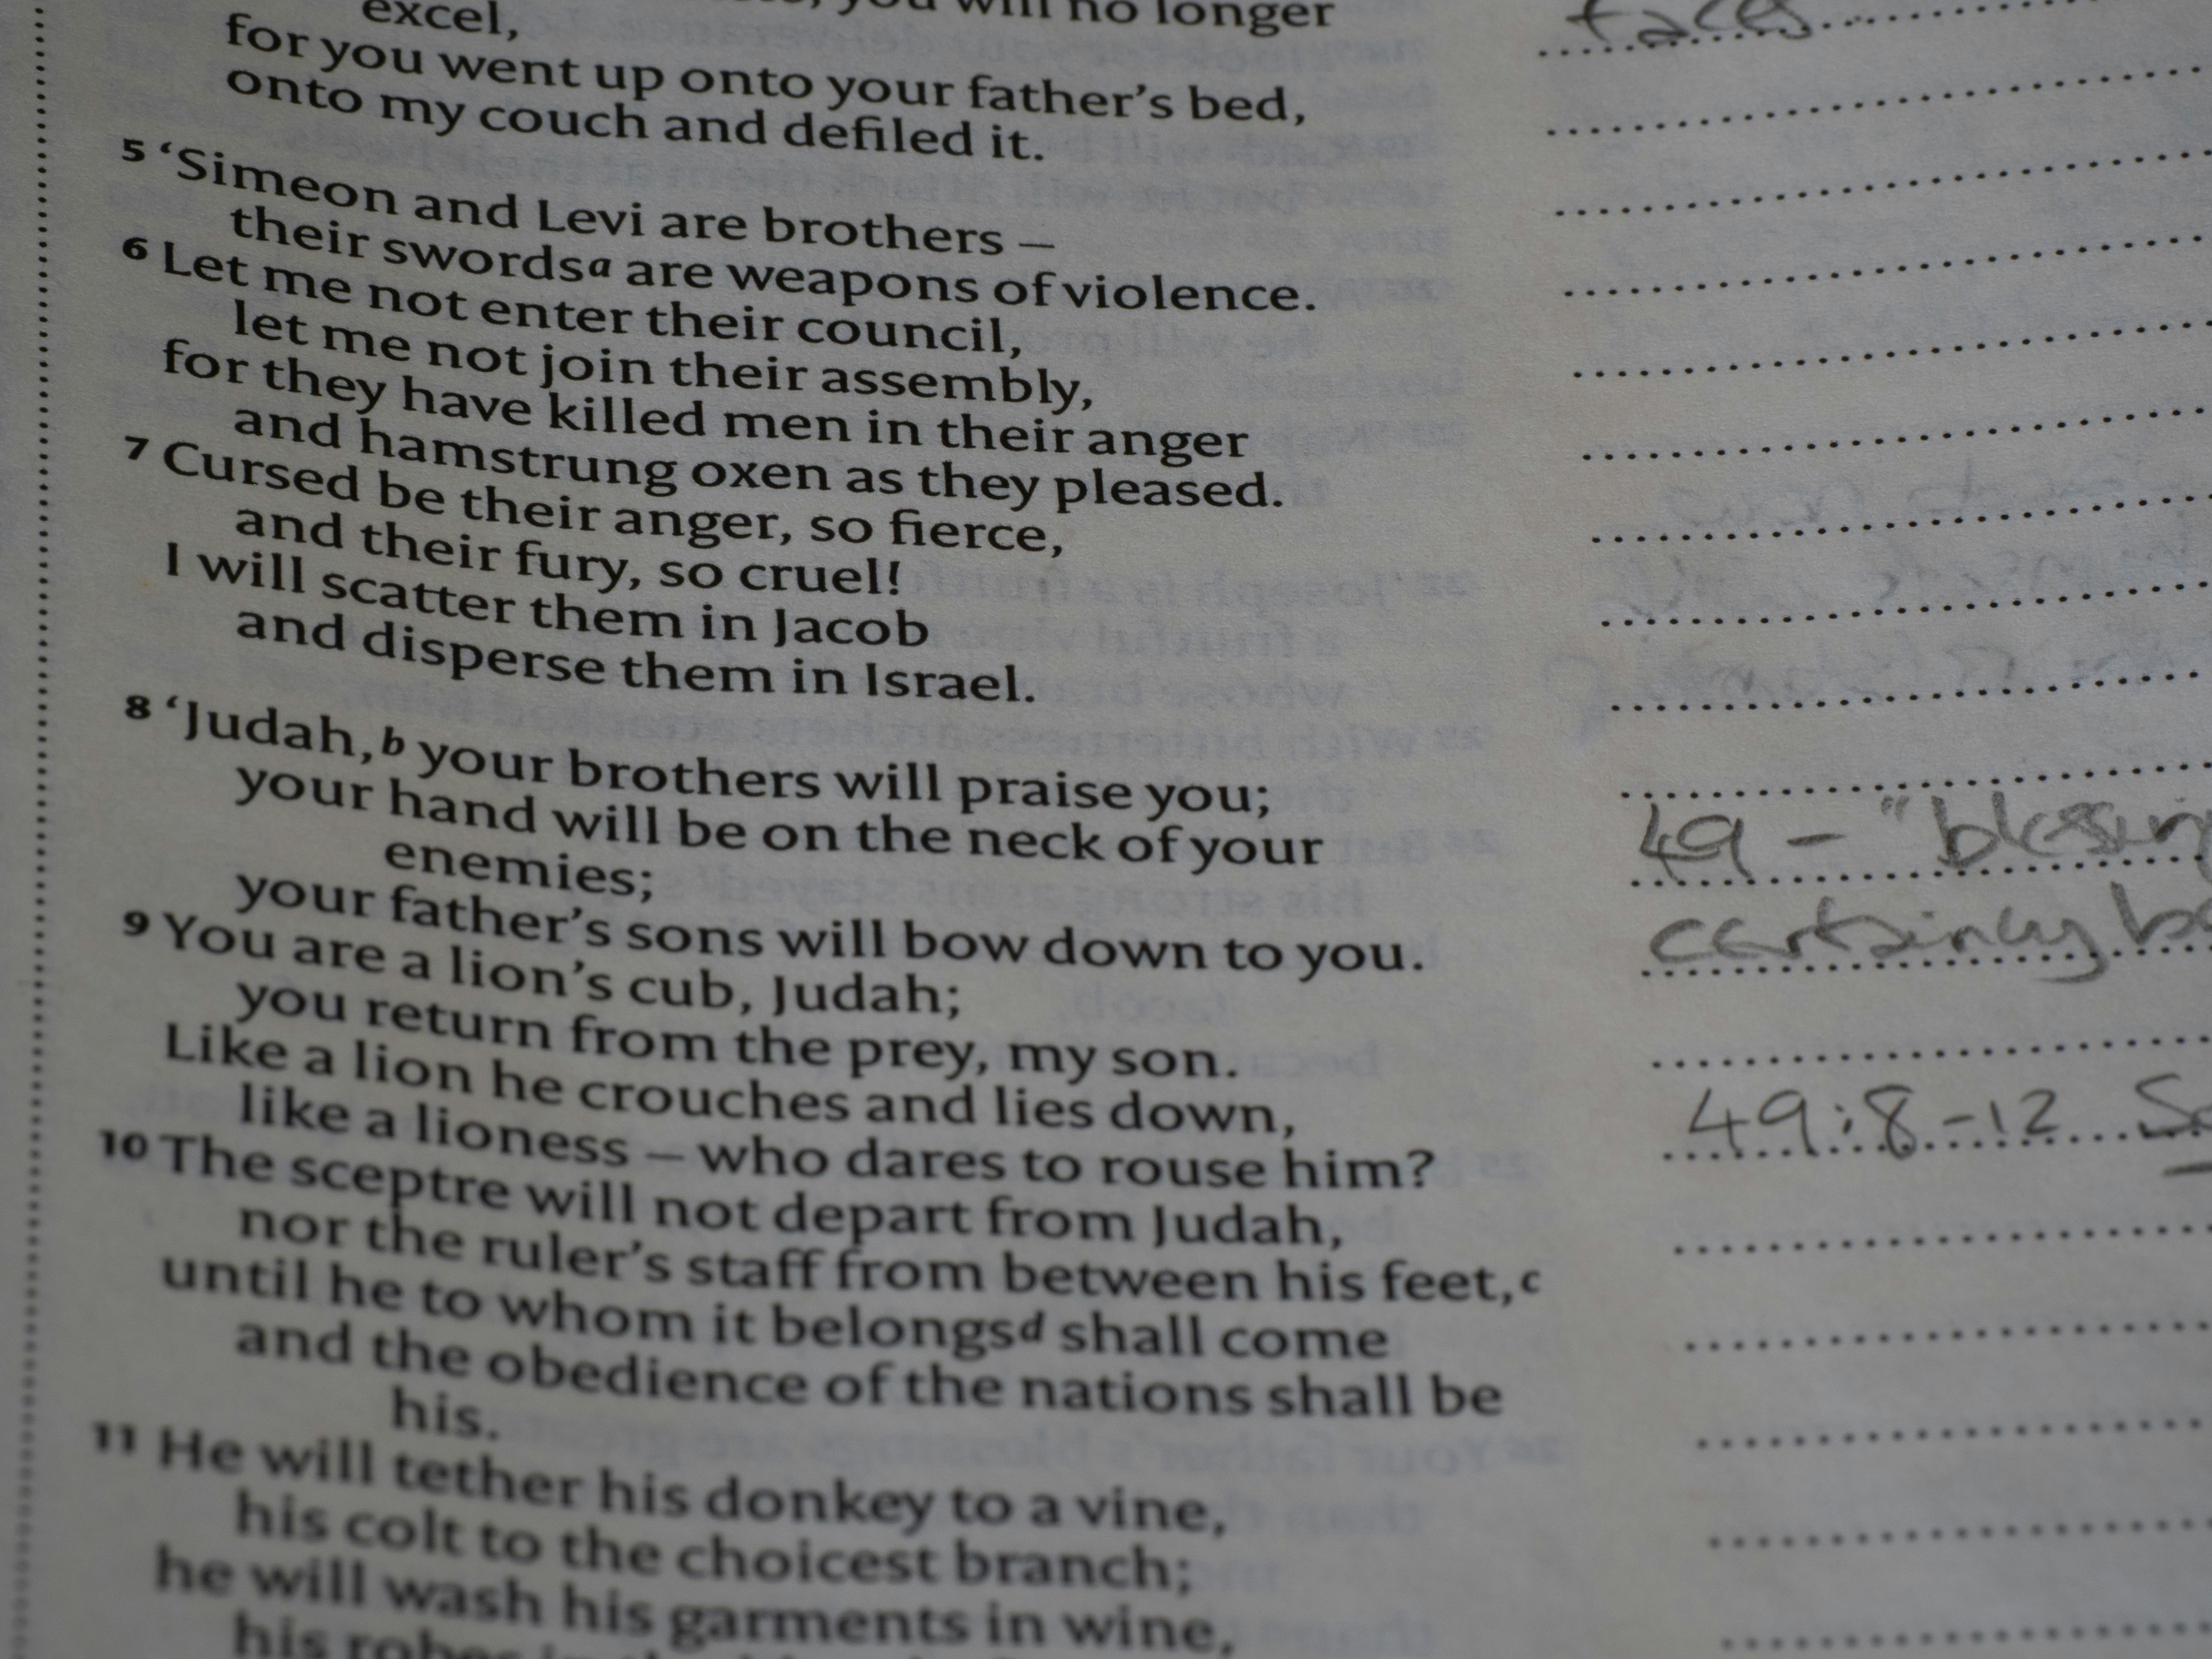 you will no longer
excel,
for you went up onto your father's bed,
onto my couch and defiled it.
5 ‘Simeon and Levi are brothers –
their swordsa are weapons of violence.
6 Let me not enter their council,
let me not join their assembly,
for they have killed men in their anger
and hamstrung oxen as they pleased.
7 Cursed be their anger, so fierce,
and their fury, so cruel!
I will scatter them in Jacob
and disperse them in Israel.
8 ‘Judah,b your brothers will praise you;
your hand will be on the neck of your
enemies;
your father’s sons will bow down to you.
9 You are a lion’s cub, Judah;
you return from the prey, my son.
Like a lion he crouches and lies down,
like a lioness – who dares to rouse him?
10 The sceptre will not depart from Judah,
nor the ruler’s staff from between his feet,c
until he to whom it belongsd shall come
and the obedience of the nations shall be
his.
11 He will tether his donkey to a vine,
his colt to the choicest branch;
he will wash his garments in wine,
his robes in
49 – "blessing
49:8-12